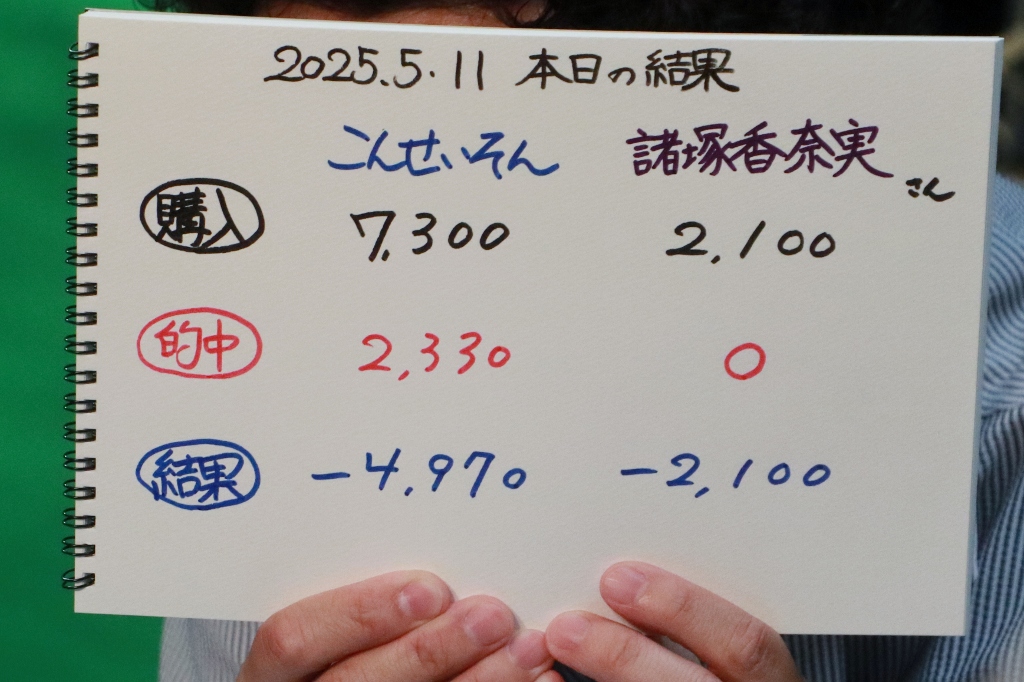 2025.5.11 本日の結果
こんせいそん 諸塚香奈実さん
購入 7,300 2,100
的中 2,330 0
結果 -4,970 -2,100